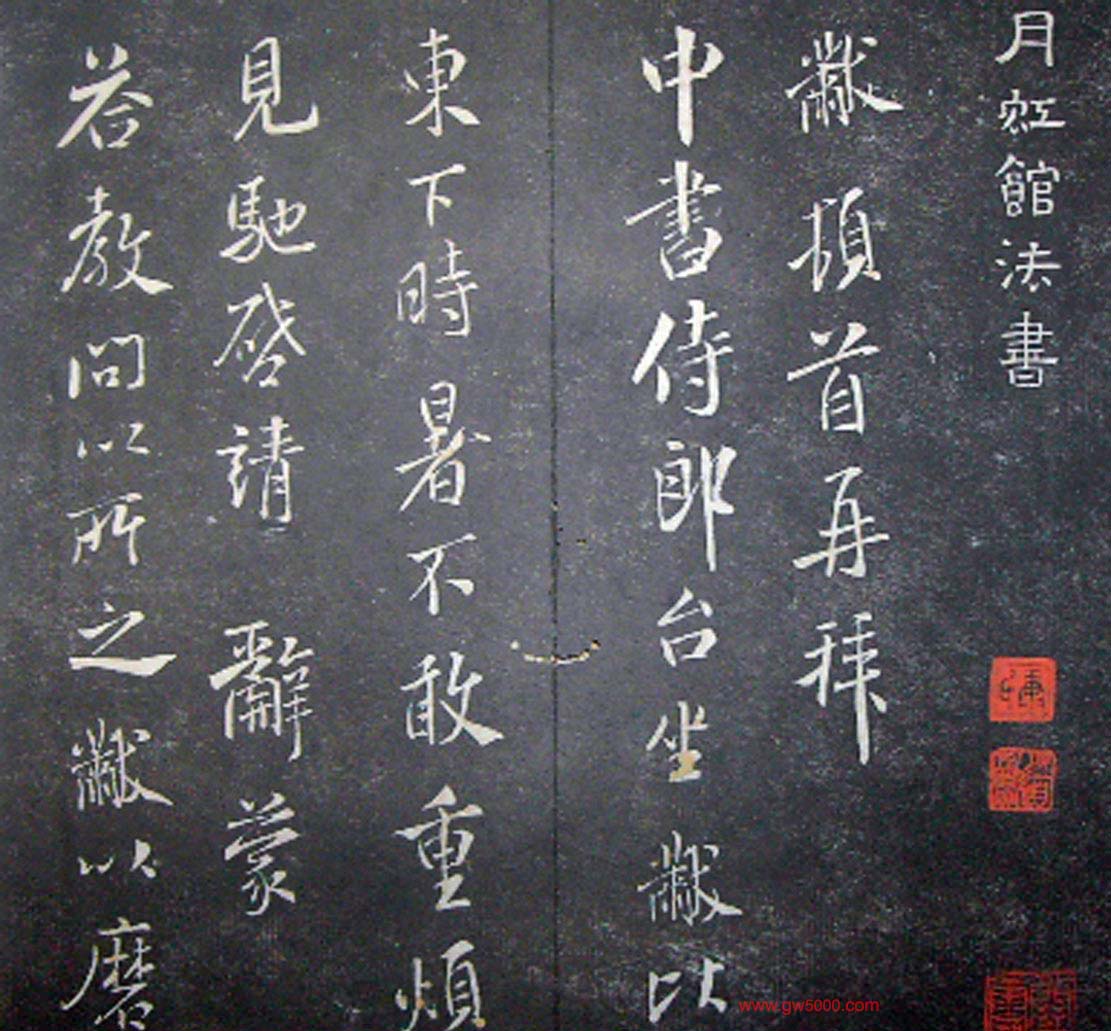 月虹館法書
黻頓首再拜
中書侍郎台坐黻以
東下時暑不敢重煩
見馳啓請 辭蒙
荅教問以所之黻以磨
www.gw5000.com